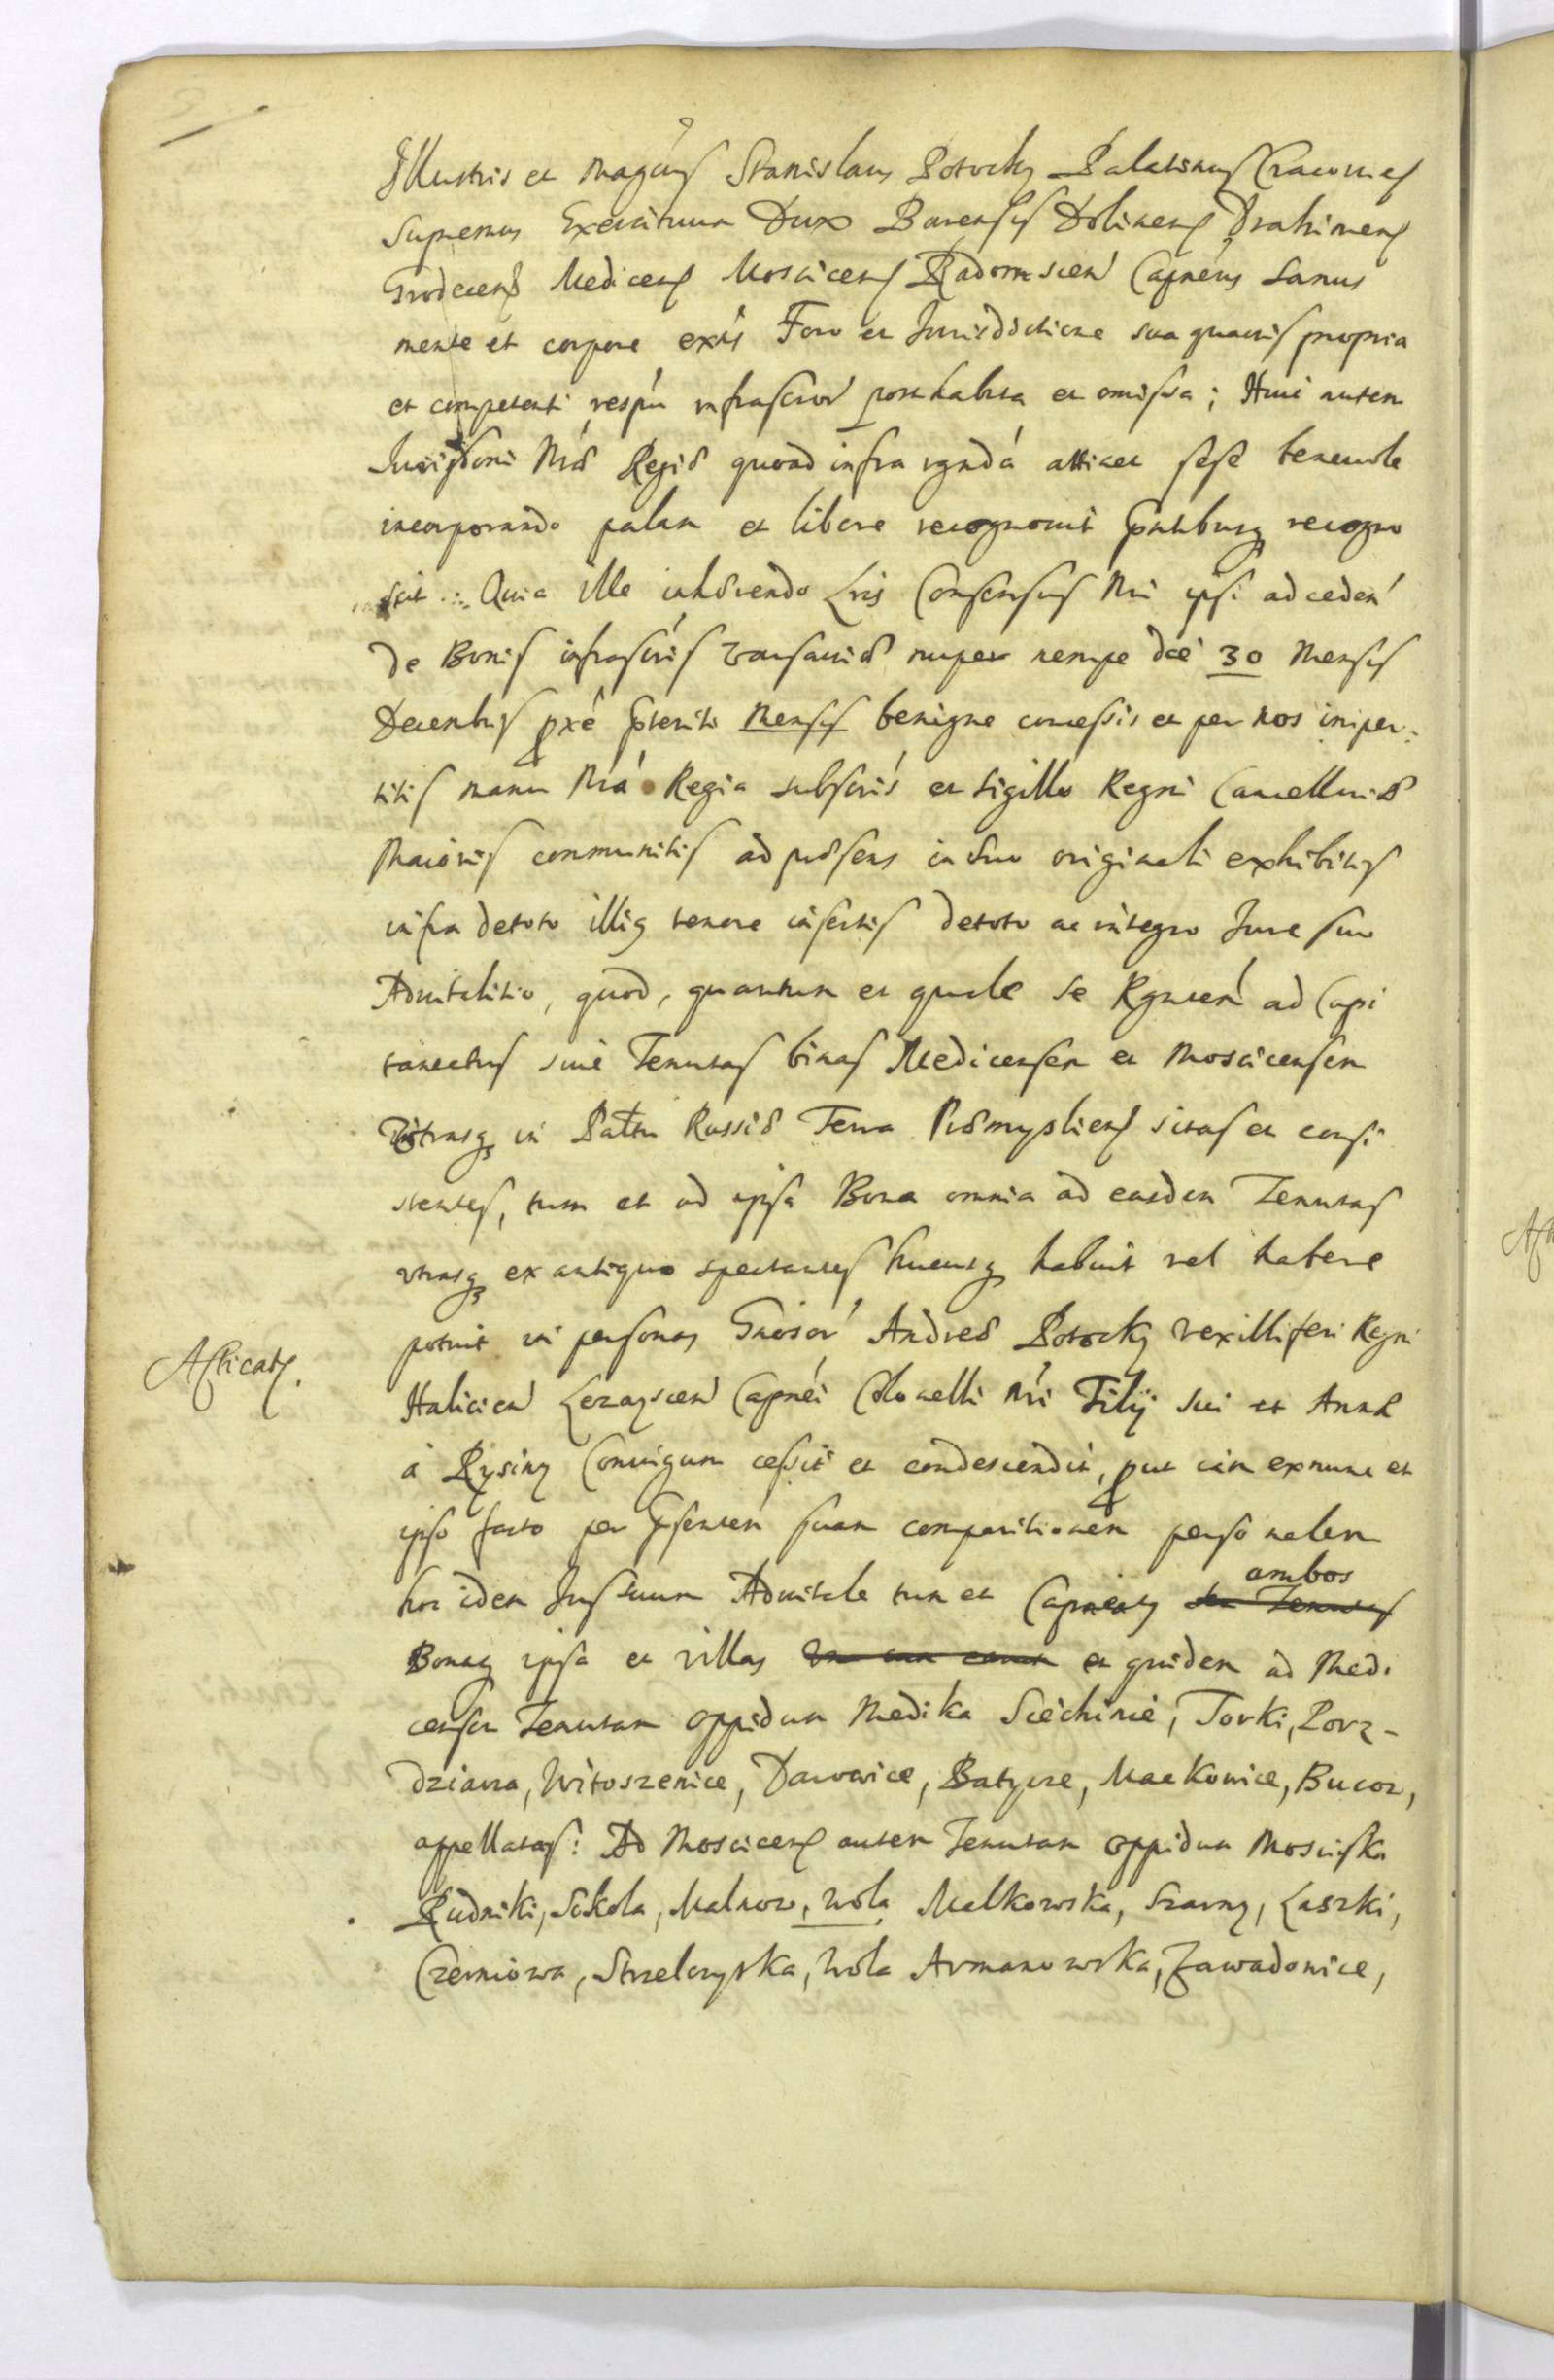 Illustris et Magcus Stanislaus Potocky Palatinus Cracovien
Supremus Exercituum Dux Barensis Dolinens Drahimens
Grodecens Medicens Moscicens Radomscen Capneus sanus
mente et corpore exñs Foro et Jurisdictione sua quavis propria
et competenti respũ infrascror posthabita et omissa; Huic autem
Jurisdoni Nrae Regiae quoad infra rgnda attinet sese benevole
incorporando palam et libere recognovit pñtibusq recogno
scit. Quia ille inhaerendo Lris Consensus Nri ipsi ad ceden
de Bonis infrascris nuper nempe die 30 Mensis
Decembris pxe pteriti Mensis benigne concessis et per nos imper-
titis manu Nra Regia subscris et sigillo Regni Cancellariae
Maioris communitis ad praesens in suo originali exhibitis
infra de toto illiq tenore insertis de toto ac integro Jure suo
Advitalitio, quod, quantum et quale se rgnscen ad Capi
taneatus sive Tenutas binas Medicensem et Moscicensem
Utrasq in Pattu Russiae Terra Praemysliens sitas et consi
stentes, tum et ad ipsa Bona omnia ad easdem Tenutas
utrasq ex antiquo spectantes hucusq habuit vel habere
potuit in personas Gnosor Andreae Potocky vexilliferi Regni
Afficatq. Halicien Lezayscen Capnei Colonelli Nri Filij sui et Annae
à Rysiny Coniugum cessit et condescendit, put iam ex nunc et
ipso facto per psentem suam comparitionem personalem
hoc idem Jus suum Advitale tum et Capneaty ambos
Bonaq ipsa et villas et quidem ad Medi
censem Tenutam oppidum Medika Sciechinie, Torki, Porz-
dziarra, Witoszenice, Darowice, Batyrze, Mackowice, Bucow,
appellatas: Ad Moscicens autem Tenutam oppidum Mosciska
Rudniki, Sokola, Malnow, wola Malkowska, Szarny, Laszki,
Czerniowa, Strzelczyska, Wola Armanowska, Zawadowice,